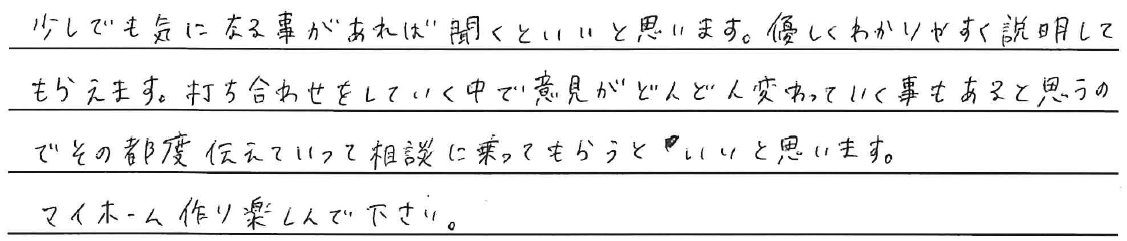 少しでも気になる事があれば聞くといいと思います。優しくわかりやすく説明して
もらえます。打ち合わせをしていく中で意見がどんどん変わっていく事もあると思うの
でその都度伝えていって相談に乗ってもらうといいと思います。
マイホーム作り楽しんで下さい。